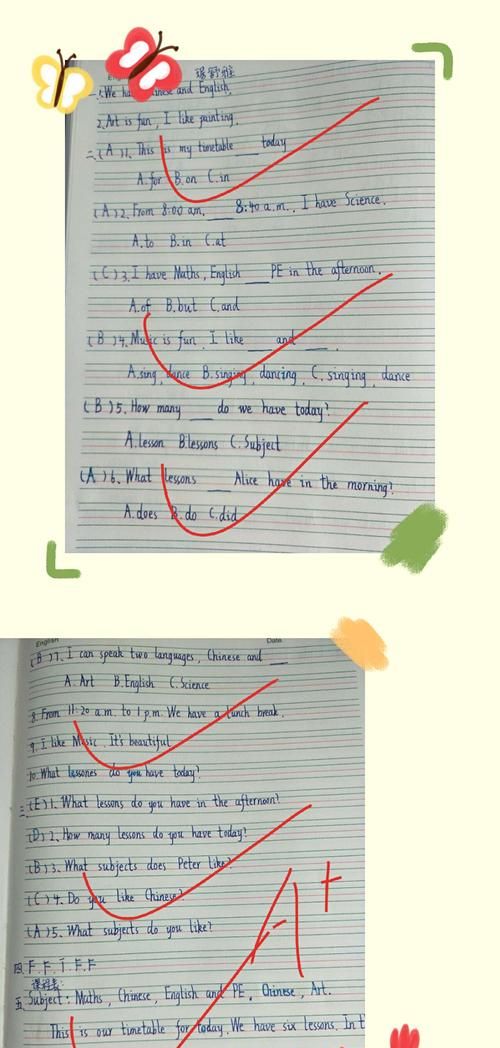 一、1.We ha inese and English.
2.Art is fun, I like painting.
二、(A)1. This is my timetable ___ today
A.for B.on C.in
(A)2. From 8:00 am. ___ 8:40 a.m., I have Science.
A.to B.in C.at
(C)3. I have Maths, English ___ PE in the afternoon.
A.of B.but C.and
(B)4. Music is fun, I like ___ and ___.
A.sing, dance B.singing, dancing, C. singing, dance
(B)5. How many ___ do we have today?
A.lesson B.lessons C.Subject
(A)6. What lessons ___ Alice have in the morning?
A.does B.do C.did
English Date
(B)7. I can speak two languages, Chinese and ___
A. Art B.English C.Science
8. From 11:20 a.m. to 1 p.m. We have a lunch break.
9. I like Music. It's beautiful
10. What lessones do you have today?
三、(E)1. What lessons do you have in the afternoon?
(D)2. How many lessons do you have today?
(B)3. What subjects does Peter like?
(C)4. Do you like Chinese?
(A)5. What subjects do you like?
四 F. F. T. F. F
课程表:
五 Subject: Maths, Chinese, English and PE, Chinese, Art.
This is our timetable for today. We have six lessons. In t
A+